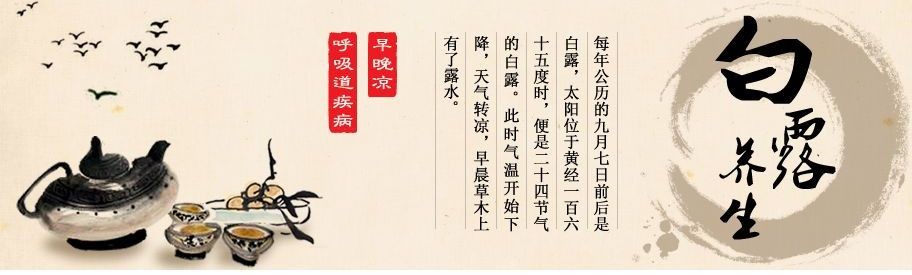 白露
养生
每年公历的九月七日前后是
白露，太阳位于黄经一百六
十五度时，便是二十四节气
的白露。此时气温开始下
降，天气转凉，早晨草木上
有了露水。
早晚凉
呼吸道疾病